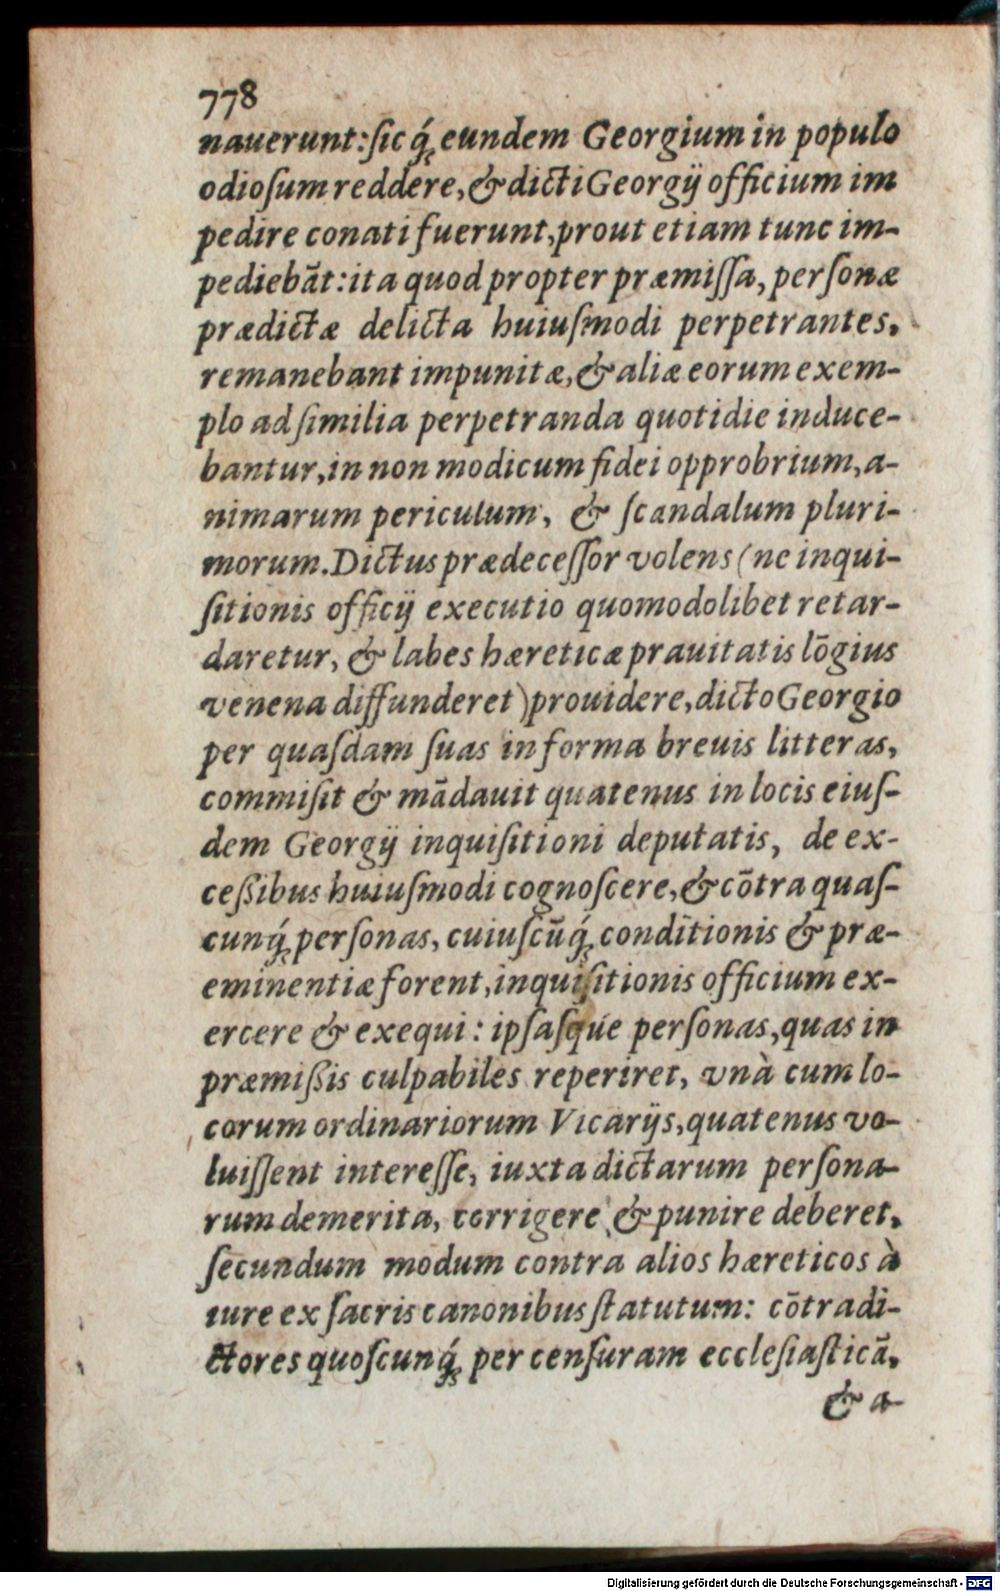 778
nauerunt:ſicq́; eundem Georgium in populo
odioſum reddere,& dicti Georgij officium im
pedire conati fuerunt,prout etiam tunc im-
pediebãt:ita quod propter præmiſſa, perſonæ
prædictæ delicta huiuſmodi perpetrantes,
remanebant impunitæ,& aliæ eorum exem-
plo ad ſimilia perpetranda quotidie induce-
bantur,in non modicum fidei opprobrium,a-
nimarum periculum, & ſcandalum pluri-
morum. Dictus prædeceſſor volens (ne inqui-
ſitionis officij executio quomodolibet retar-
daretur, & labes hæreticæ prauitatis lõgius
venena diffunderet) prouidere,dicto Georgio
per quaſdam ſuas in forma breuis litteras,
commiſit & mãdauit quatenus in locis eiuſ-
dem Georgij inquiſitioni deputatis, de ex-
ceßibus huiuſmodi cognoſcere,& cõtra quaſ-
cunq́; perſonas, cuiuſcũq́; conditionis & præ-
eminentiæ forent,inquiſitionis officium ex-
ercere & exequi: ipſaſque perſonas,quas in
præmißis culpabiles reperiret, vnà cum lo-
corum ordinariorum Vicarijs,quatenus vo-
luiſſent intereſſe, iuxta dictarum perſona-
rum demerita, corrigere & punire deberet,
ſecundum modum contra alios hæreticos à
iure ex ſacris canonibus ſtatutum: cõtradi-
ctores quoſcunq́; per cenſuram eccleſiaſticã,
& a-
Digitalisierung gefördert durch die Deutsche Forschungsgemeinschaft - DFG